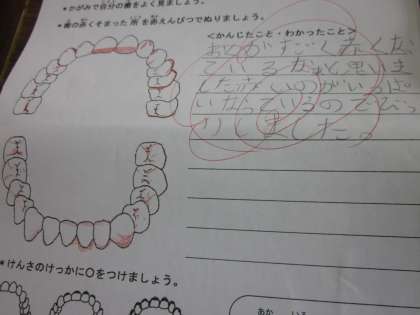 ＊かがみで自分の歯をよく見ましょう。
＊歯の赤くそまった所を赤えんぴつでぬりましょう。
＜かんじたこと・わかったこと＞
ているなあと思いま
した赤いのがいっぱ
いなっているのでびっ
りしました。
＊けんさのけっかに○をつけましょう。
あか いろ